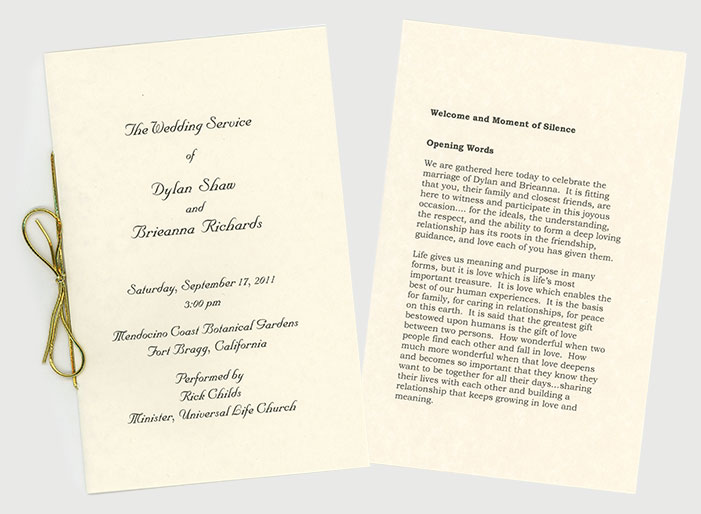 The Wedding Service
of
Dylan Shaw
and
Brieanna Richards
Saturday, September 17, 2011
3:00 pm
Mendocino Coast Botanical Gardens
Fort Bragg, California
Performed by
Rick Childs
Minister, Universal Life Church
Welcome and Moment of Silence
Opening Words
We are gathered here today to celebrate the
marriage of Dylan and Brieanna. It is fitting
that you, their family and closest friends, are
here to witness and participate in this joyous
occasion.... for the ideals, the understanding,
the respect, and the ability to form a deep loving
relationship has its roots in the friendship,
guidance, and love each of you has given them.
Life gives us meaning and purpose in many
forms, but it is love which is life's most
important treasure. It is love which enables the
best of our human experiences. It is the basis
for family, for caring in relationships, for peace
on this earth. It is said that the greatest gift
bestowed upon humans is the gift of love
between two persons. How wonderful when two
people find each other and fall in love. How
much more wonderful when that love deepens
and becomes so important that they know they
want to be together for all their days...sharing
their lives with each other and building a
relationship that keeps growing in love and
meaning.